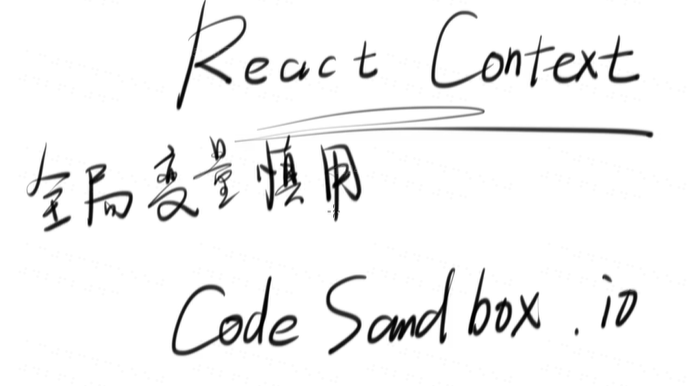 React Context
全局变量慎用
Code Sandbox.io